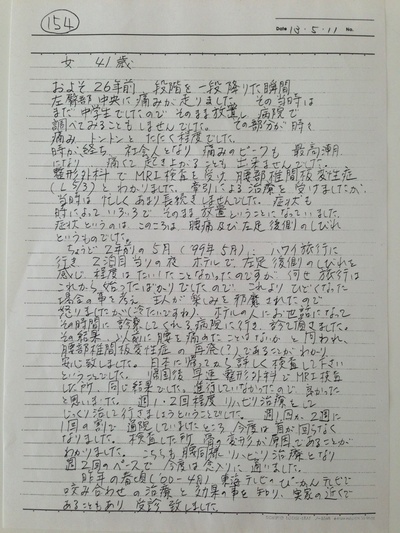 154
Date 13・5・11 No.
女 41歳
およそ26年前 段階を一段降りた瞬間
左臀部中央に痛みが走りました。 その当時は
まだ中学生でしたので そのまま放置し 病院で
調べてみることもしませんでした。 その部分が時々
痛み トントンと たたく程度でした。
時が経ち、社会人となり 痛みのピークも 最高潮
になり 痛くて 起き上がることも 出来ませんでした。
整形外科で MRI検査を受け 腰部椎間板変性症
(L5/S)と わかりました。 牽引による治療を受けましたが、
当時は 忙しく あまり長続きしませんでした。 症状も
時によって いろいろで そのまま放置ということになっていました。
症状というのは このころは 腰痛及び左足後側のしびれ
というものでした。
ちょうど 2年前の5月 (99年5月)に ハワイ旅行に
行き 2泊目当りの夜 ホテルで 左足後側のしびれを
感じ 程度は たいしたことなかったのですが 何せ 旅行は
これから始ったばかりでしたので これよりひどくなった
場合の事を考え 主人が楽しみを邪魔されたので
怒りましたが (冷たいですね)、ホテルの人にお世話になって
その時間に 診察してくれる病院に行き 診て頂きました。
その結果 以前に 腰を痛めたことはないか と問われ、
腰部椎間板変性症の再発(?)であることがわかり
安心致しました。 日本に帰ってから 詳しく検査して下さい
ということでした。 帰国後 早速 整形外科で MRI検査
した所 同じ結果でした。進行していなかったので 良かった
と思いました。 週1・2回程度 リハビリ治療をして
じっくり治して行きましょうということでした。 週1回か、2週に
1回の割で 通院していましたところ 今度は 首が回らなく
なりました。 検査した所 骨の変形が原因であることが
わかりました。 こちらも 腰同様 リハビリ治療となり
週2回のペースで 今度は 念入りに 通いました。
昨年の春頃 (00-4月) 東海テレビの ぴーかんテレビで
咬み合わせの治療と効果の事を知り、実家の近くで
あることもあり 受診致しました。